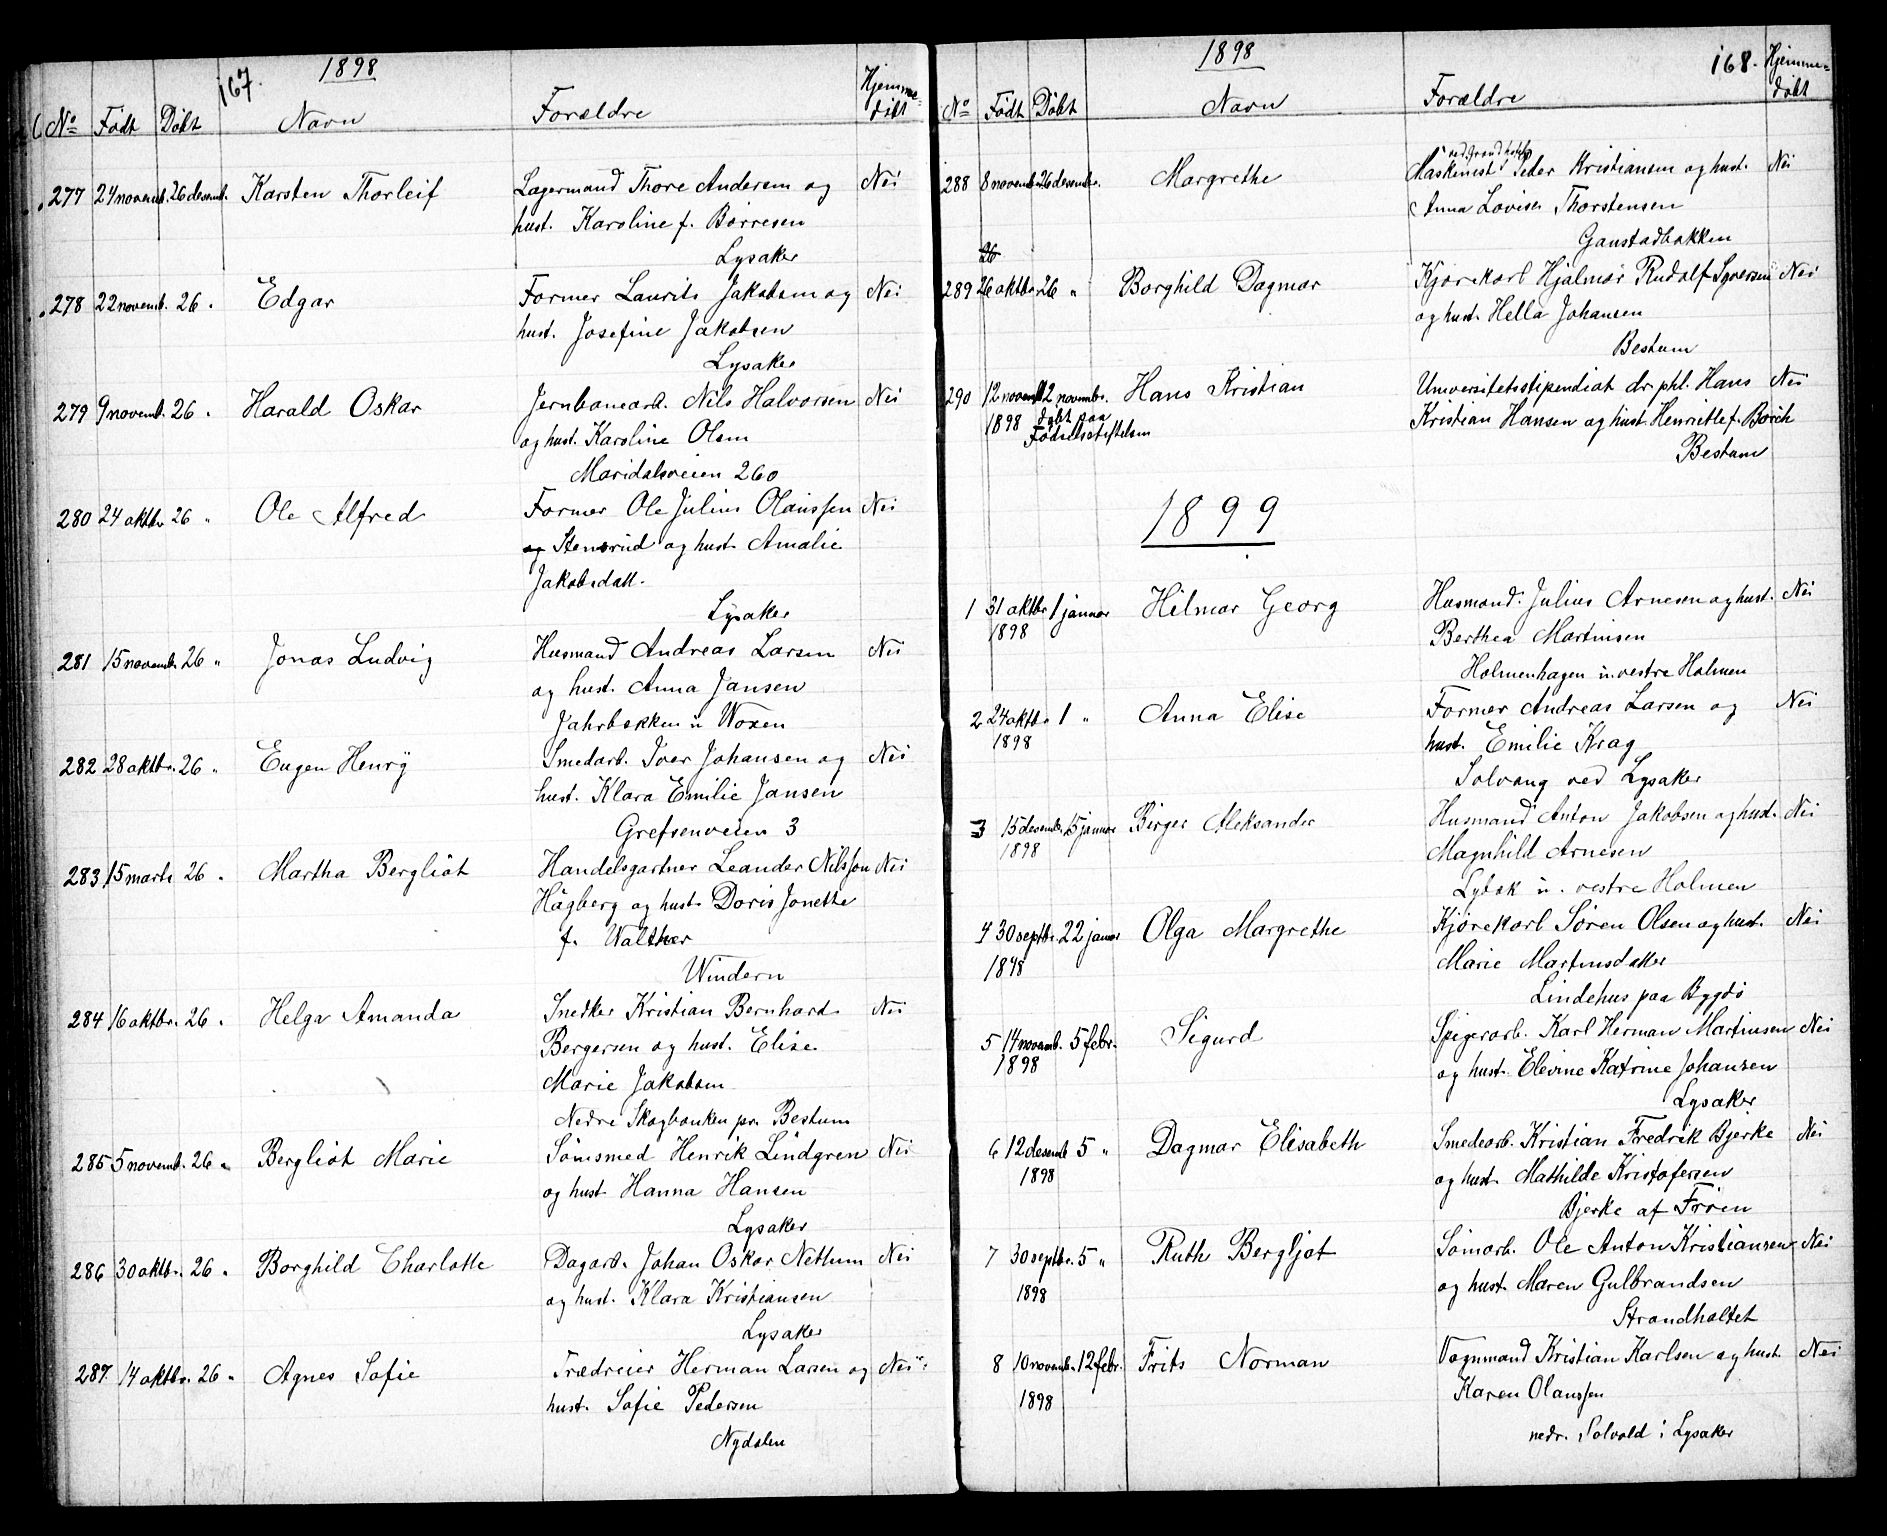 167.
1898
No Født Døbt Navn Forældre Hjemme-
døbt
277 24 novemb. 26 desemb. Karsten Thorleif Lagermand Thore Andersen og Nei
hust. Karoline f. Børresen
Lysaker
278 22 novemb. 26 . Edgar Former Laurits Jakobsen og Nei
hust. Josefine Jakobsen
Lysaker
279 9 novemb. 26 . Harald Oskar Jernbanearb. Nils Halvorsen Nei
og hust. Karoline Olsen
Maridalsveien 260
280 24 oktbr 26 " Ole Alfred Former Ole Julius Olaussen Nei
og Stensrud og hust. Amalie
Jakobsdatt.
Lysaker
281 15 novemb. 26 " Jonas Ludvig Husmand Andreas Larsen Nei
og hust. Anna Jansen
Jahrbakken u Woxen
282 28 oktbr. 26 " Eugen Henry Smedarb. Iver Johansen og Nei
hust. Klara Emilie Jansen
Grefsenveien 3
283 15 marts 26 . Martha Bergliót Handelsgartner Leander Nilsson Nei
Hågberg og hust. Doris Jonette
f. Walther
Windern
284 16 oktbr. 26 . Helga Amanda Snedker Kristian Bernhard Nei
Bergersen og hust. Elise
Marie Jakobsen
Nedre Skogbanken pr. Bestum
285 5 novemb. 26 " Bergliot Marie Sømsmed Henrik Lindgren Nei
og hust Hanna Hansen
Lysaker
286 30 oktb. 26 . Borghild Charlotte Dagarb. Johan Oskar Nettum Nei
og hust. Klara Kristiansen
Lysaker
287. 14 oktbr. 26 " Agnes Sofie Trædreier Herman Larsen og Nei
hust. Sofie Pedersen
Nydalen
1898
168.
No Født Døbt Navn Forældre Hjemme-
døbt
ved Grand hotel
288 8 novemb. 26 desembr. Margrethe Maskinist Peder Kristiansen og hust. Nei
Anna Lovise Thorstensen
Gaustadbakken
26
289 26 oktbr 26 " Borghild Dagmar Kjørekarl Hjalmar Rudolf Syversen Nei
og hust. Hella Johansen
Bestum
290 12 novemb. 12 novembr. Hans Kristian Universitetsstipendiat dr. phl. Hans Nei
1898 døbt paa Kristian Hansen og hust. Henriette f. Borch
Fødselsstiftelsen
Bestum
1899
1 31 oktbr 1 januar Hilmar Georg Husmand Julius Arnesen og hust. Nei
1898 Berthea Martinsen
Holmenhagen u. vestre Holmen
2 24 oktbr. 1 " Anna Elise Former Andreas Larsen og Nei
1898 hust. Emilie Krag
Solvang ved Lysaker
3 15 desemb. 15 januar Birger Aleksander Husmand Anton Jakobsen og hust. Nei
1898 Magnhild Arnesen
Lybæk u. vestre Holmen
4 30 septbr. 22 januar Olga Margrethe Kjørekarl Søren Olsen og hust. Nei
1898 Marie Martinsdatter
Lindehus paa Bygdø
5 14 novemb. 5 febr. Sigurd Spigerarb. Karl Herman Martinsen Nei
1898 og hust. Elevine Katrine Johansen
Lysaker
6 12 desemb 5 " Dagmar Elisabeth Smedearb. Kristian Fredrik Bjerke Nei
1898 og hust. Mathilde Kristofersen
Bjerke af Frøen
7 30 septbr. 5 " Ruth Bergljot Sømarb. Ole Anton Kristiansen Nei
1898 og hust. Maren Gulbrandsen
Strandholtet
8 10 novemb. 12 febr. Frits Norman Vognmand Kristian Karlsen og hust Nei
1898 Karen Olaussen
nedr. Solvold i Lysaker